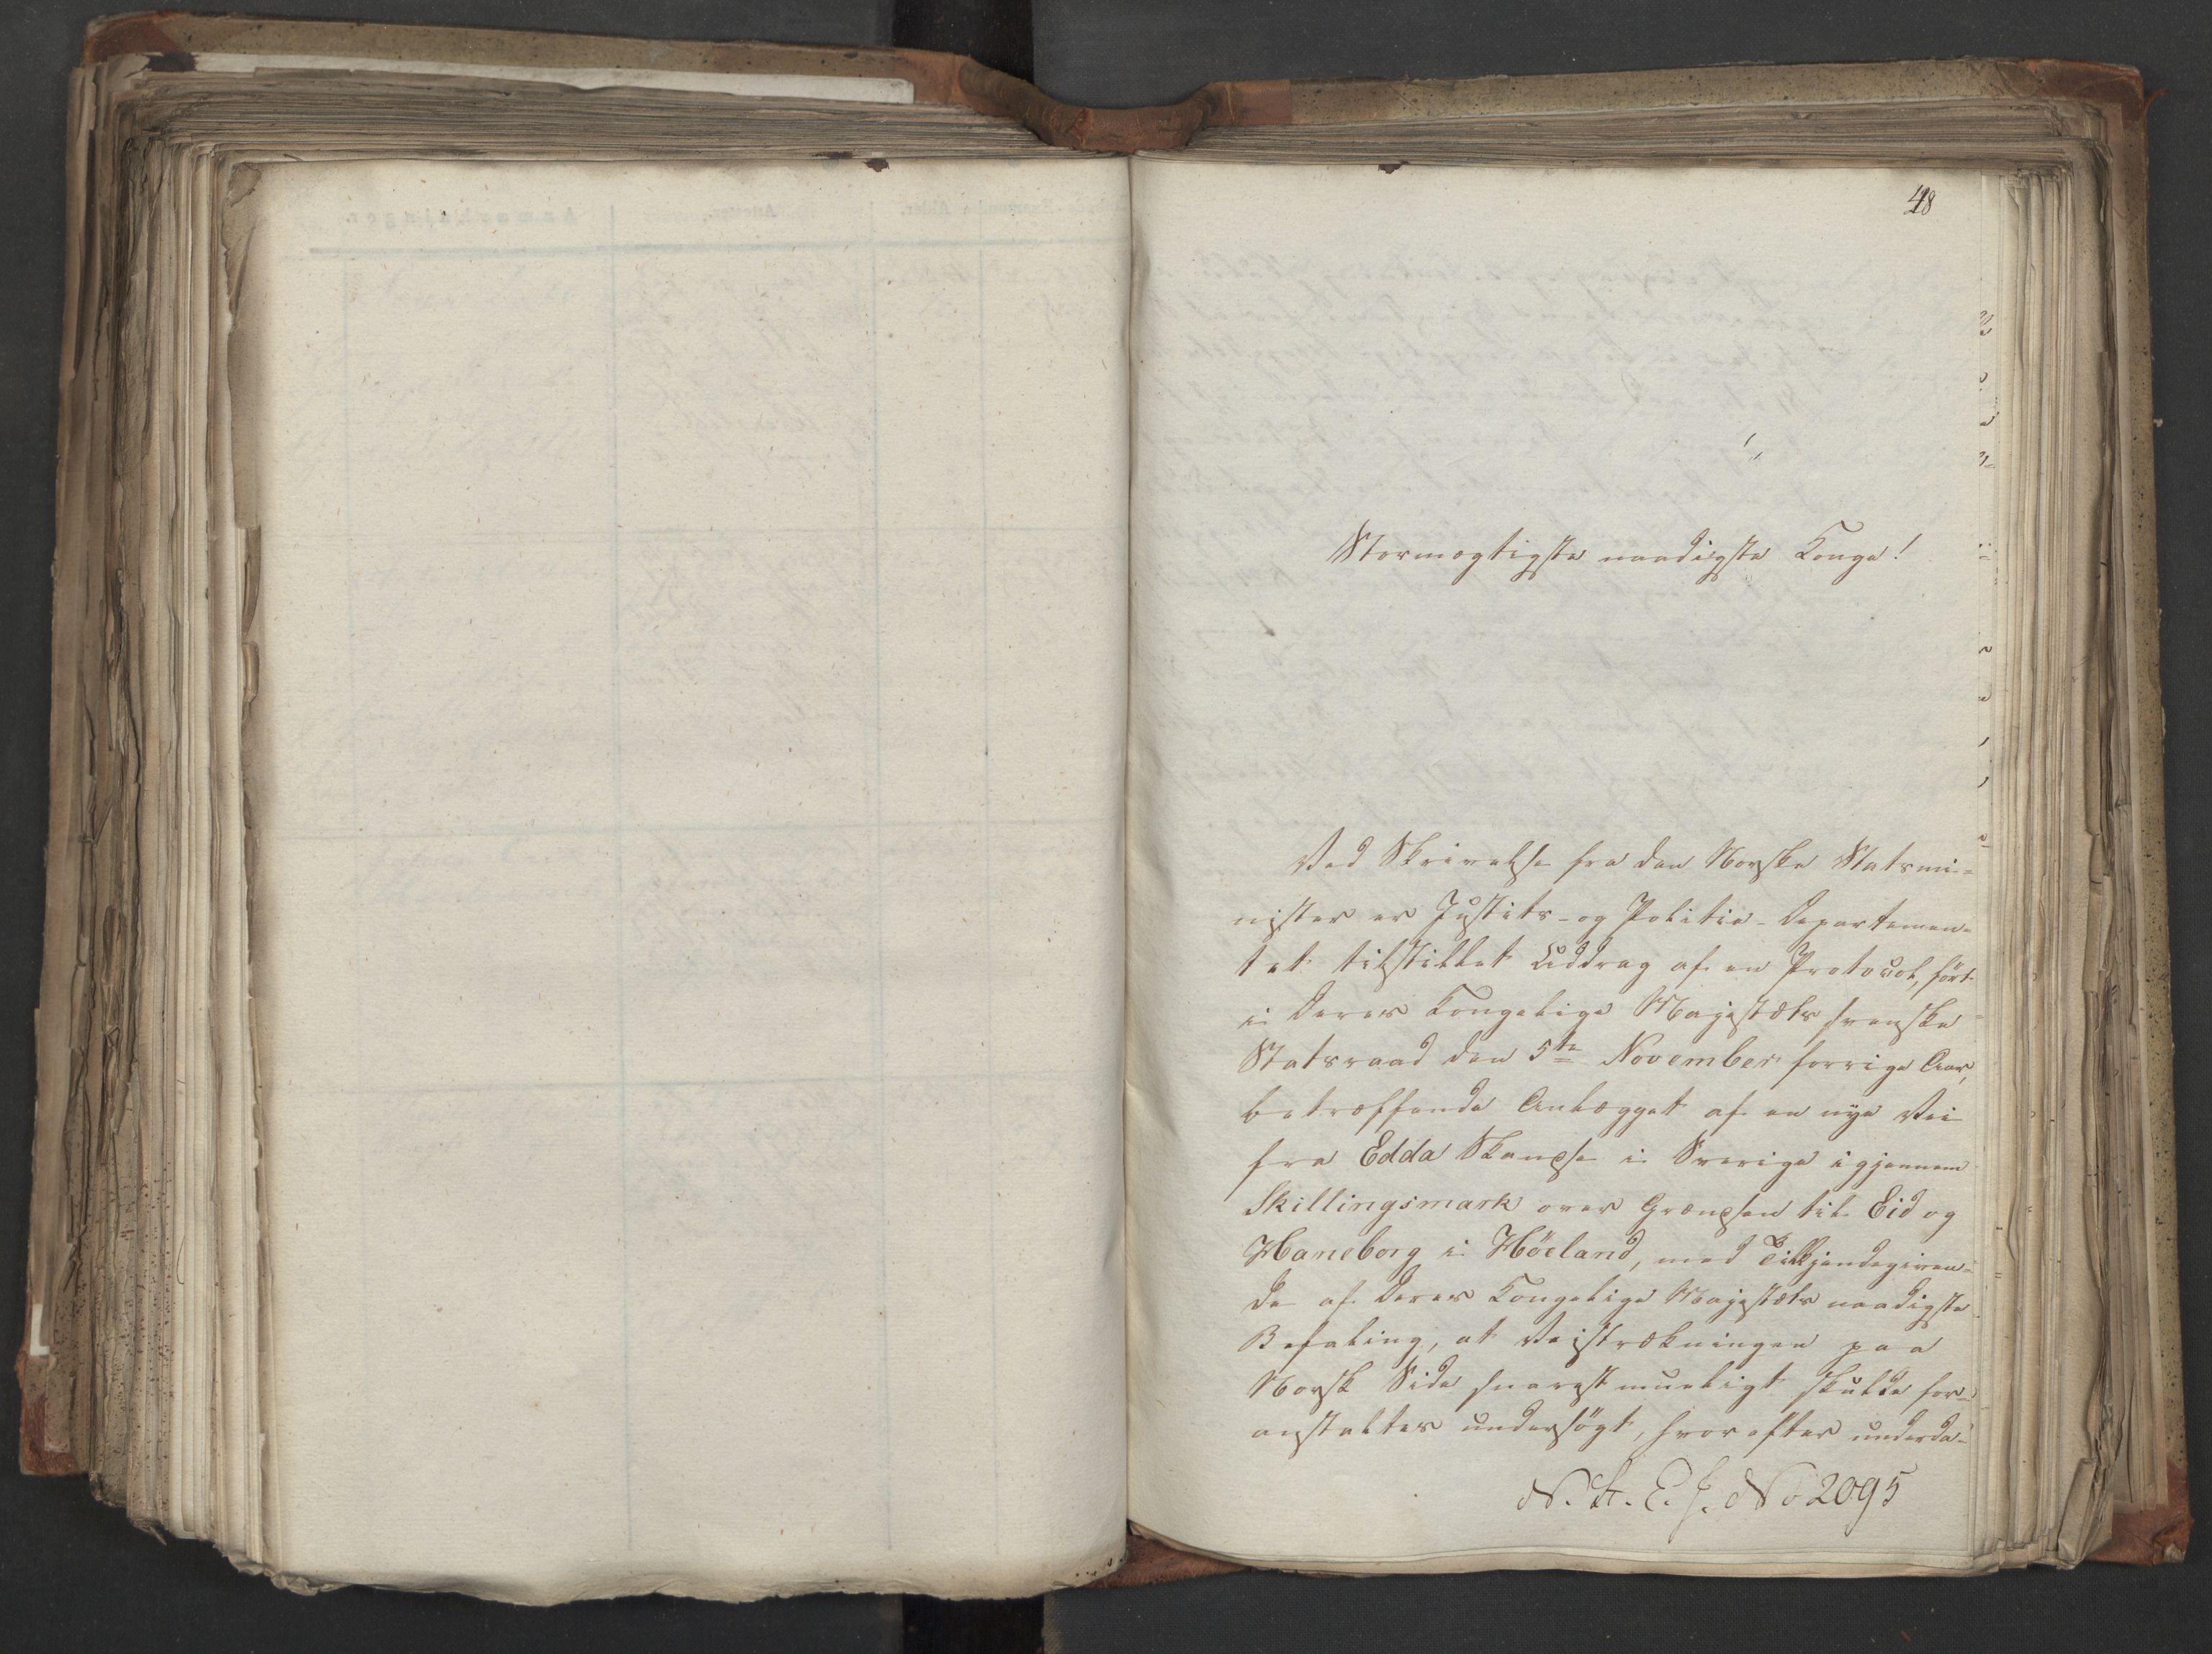 48
Stormægtigste naadigste Konge!
Ved Skrivelse fra den Norske Statsmi=
nister er Justits- og Politie-Departemen=
tet tilstillet Uddrag af en Protocol, ført
i Deres Kongelige Majestæts svenske
Statsraad den 5te November forrige Aar,
betræffende Anlægget af en nye Vei
fra Edda Skandse i Sverige igjennem
Skillingsmark over Grændsen til Eid og
Haneborg i Höeland, med Tilkjendegiven=
de af Deres Kongelige Majestæts naadigste
Befaling, at Veistrækningen paa
Norsk Side snarest mueligt skulde for=
anstaltes undersögt, hvorefter underda=
N. St. E. J. No 2095